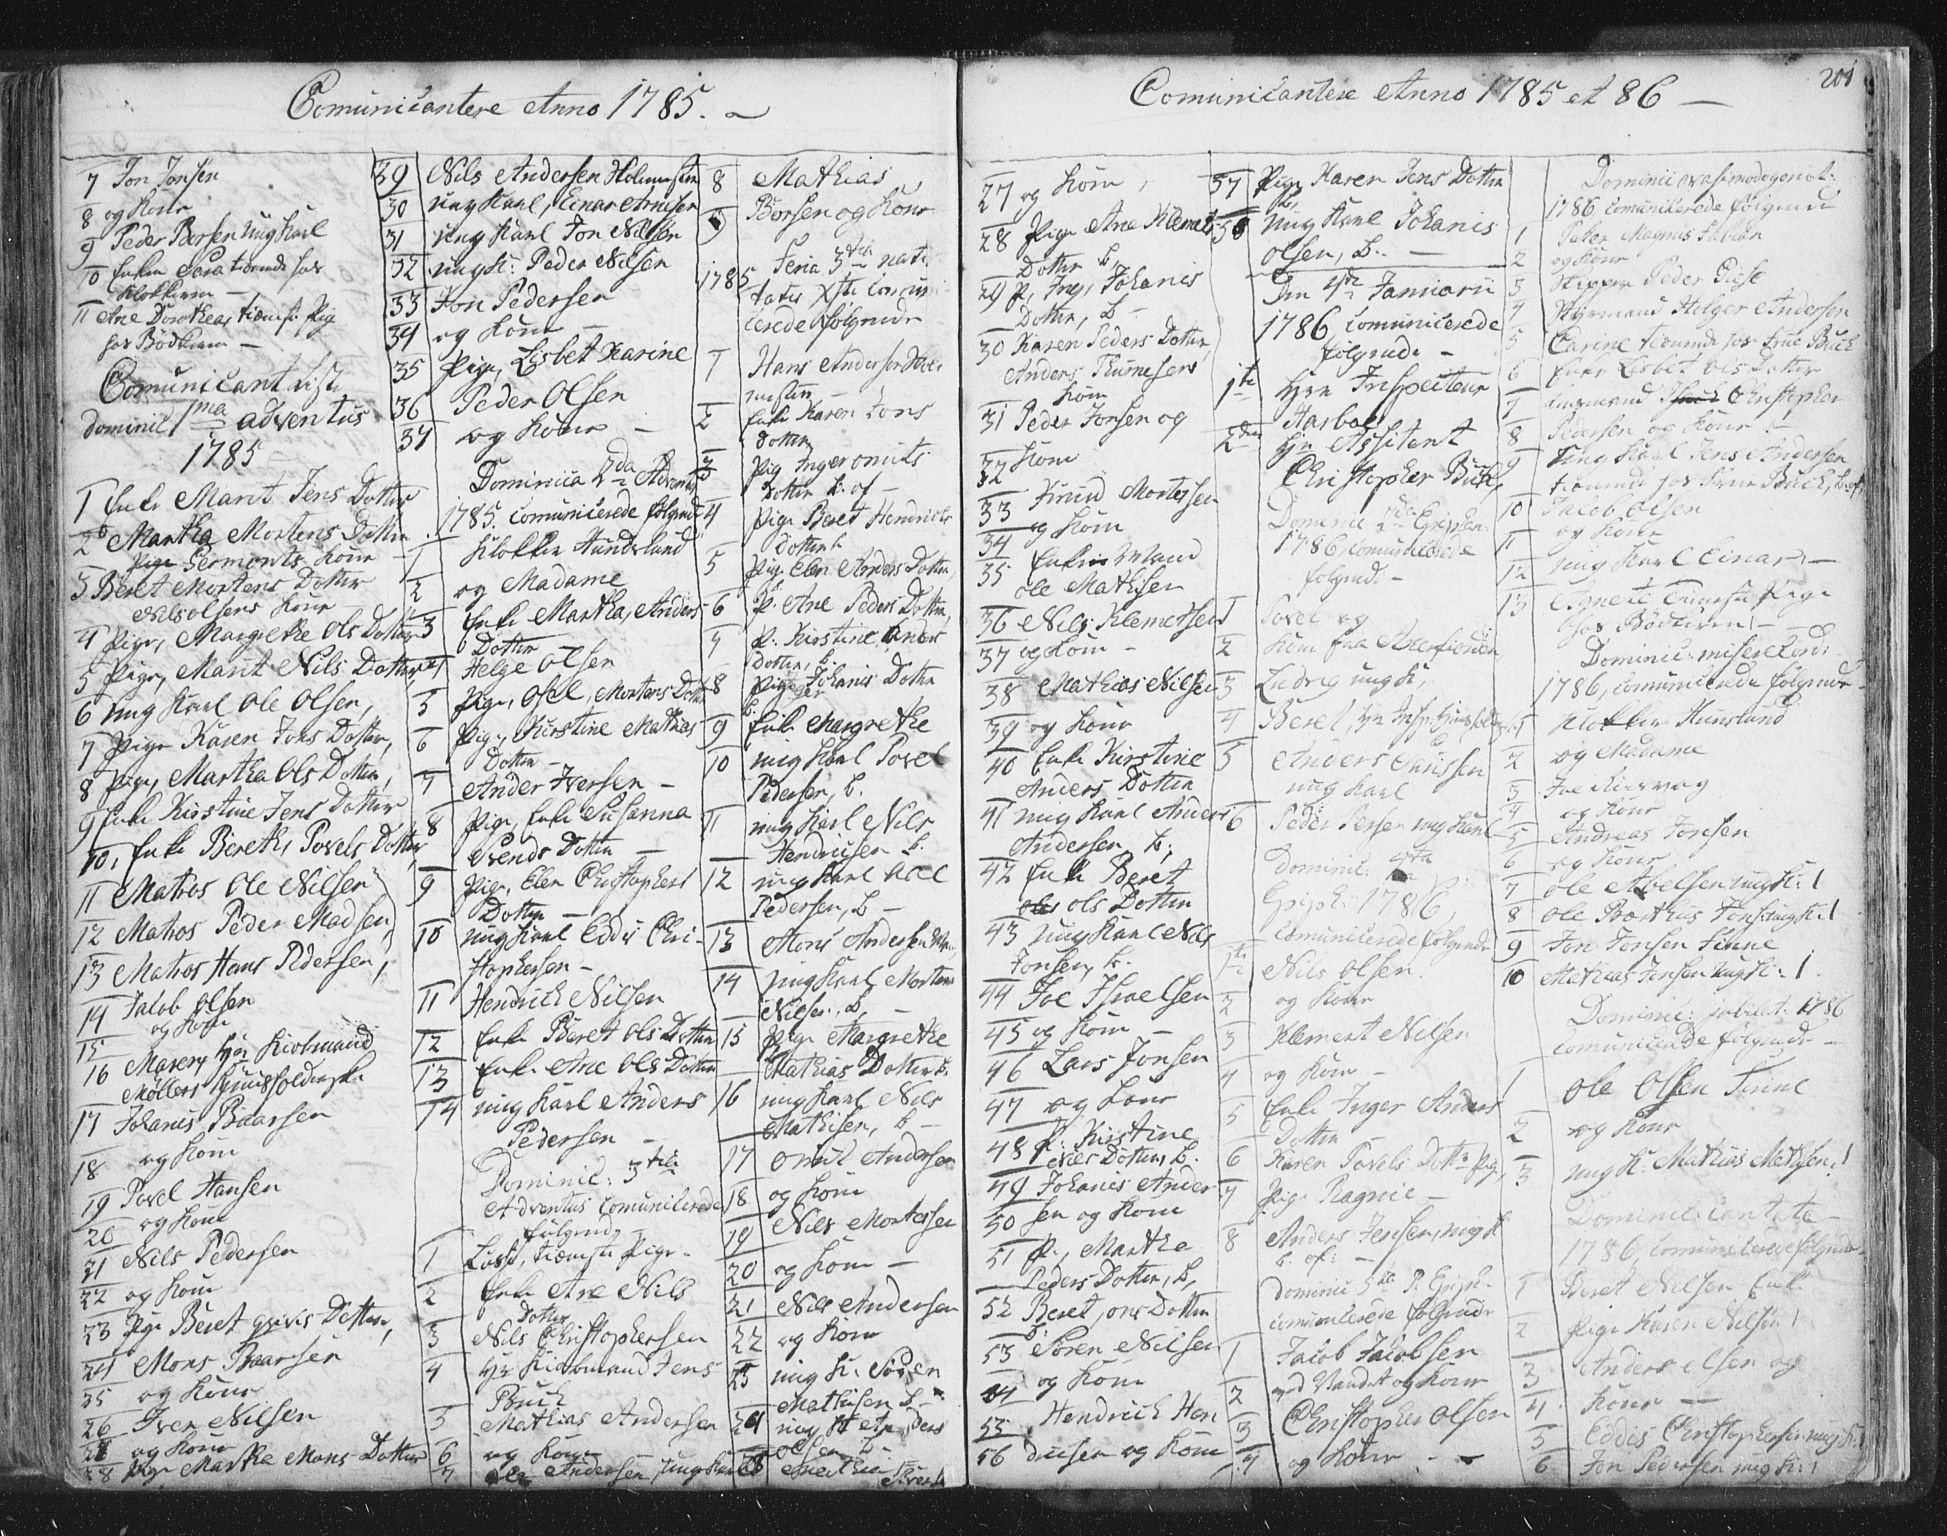 Comunicantere Anno 1785.
7 Jon Jonsen
8 og Kone
9 Peder Borsen ung Karl
10 Enke Sara tienende hos
Klokkeren
11 Ane Dorothea, tienest: Pige
hos Bødkeren
Comunicant List
Dominic 1ma adventus
1785
1 Enke Marit Jens Dotter
2 Martha Mortens Dotter
Germonts Kone
3 Beret Mortens Dotter
Nils Olsens Kone
4 Pige, Margrethe Ols Dotter
5 Pige, Marit Nils Dotter
6 ung Karl Ole Olsen,
7 Pige Karen Jons Dotter,
8 Pige, Martha Ols Dotter,
9 Enke Kirstine Jens Dotter
10, Enke Berethe Povels Dotter
11 Matros Ole Nilsen
12 Matros Peder Madsen
13 Matros Hans Pedersen,
14 Jacob Olsen
15 og Kone
16 Maren Hr Kiøbmand
Møllers Huusholderske
17 Johanis Baarsen
18 og Kone
19 Povel Hansen
20 og Kone
21 Nils Pedersen
22 og Kone
23 Pige Beret Dotter,
24 Mons Baarsen
25 og Kone
26 Iver Nilsen
27 og Kone
28 Pige Martha Mons Dotter
29 Nils Andersen
30 ung Karl, Einar Arnesen
31 ung Karl Jon Nilsen
32 ung K: Peder Nilsen
33 Jon Pedersen
34 og Kone
35 Pige, Lisbet Karine
36 Peder Olsen
37 og Kone
Dominica 2da Advent
1785. comunicerede følgende
1 Klokker Hundslund
2 og Madame
3 Enke Martha, Anders
Dotter
4 Helge Olsen
5 Pige, Osel, Mortens Dotter
6 Pige, Kirstine Mathias
Dotter
7 Ander Iversen
8 Pige, Enke Susanna
Svends Dotter
9 Pige, Elen Christophers
Dotter
10 ung Karl Eddis Chri-
stophersen
11 Hendrich Nilsen
12 Enke Beret Ols Dotter
13 Enke Ane Ols Dotter
14 ung Karl Anders
Pedersen
Dominic: 3tie
Adventus Comunicerede
følgende
1 tienest: Pige
2 Enke Ane Nils
Dotter
3 Nils Christophersen
4 Hr Kiøbmand Jens
Buch
5 Mathias Andersen
6 og Kone
7 Ole Andersen ung Karl
8 Mathias
9 Borsen og Kone
1785 Feria 3tia nati-
tatis Xsti comuni-
cerede følgende
1 Hans Andersen
2 Enke Karen Jons
Dotter
3 Pige Inger
Dotter
4 Pige Beret Hendrichs
Dotter
5 Pige Elen Anders Dotter
6 P. Ane Peders Dotter
7 P. Kirstine Anders
Dotter, b.
8 Pige Johanis Dotter
9 Enke Margrethe
10 ung Karl Povel
Pedersen, b.
11 ung Karl Nils
Hendricsen b.
12 ung Karl
Pedersen, b
13 Mons Andersen
14 ung Karl Morten
Nilsen, b,
15 Pige Margrethe
Mathias Dotter b.
16 ung Karl Nils
Mathisen, b
17 Andersen
18 og Kone
19 Nils Mortensen
20 og Kone
21 Nils Andersen
22 og Kone
23 ung K: Søren
Mathisen b.
24 ung K Anders
Olsen b
Comunicantere Anno 1785 et 86
201
27 og Kone
28 Pige Ane Klemets
Dotter b,
29 P, Johanis
Dotter, b
30 Karen Peders Dotter,
Anders
Kone
31 Peder Jonsen og
32 Kone
33 Knud Mortesen
34 og Kone
35 Enke Mand
Ole Mathisen
36 Nils Klemetsen
37 og Kone
38 Mathias Nilsen
39 og Kone
40 Enke Kirstine
Anders Dotter
41 ung Karl Anders
Andersen b,
42 Enke Beret
Ols Dotter
43 ung Karl Nils
Jonsen, b.
44 Joe Israelsen
45 og Kone
46 Lars Jonsen
47 og Kone
48 P. Kirstine
Dotter, b.
49 Johanes Ander
50 sen og Kone
51 P, Martha
Peders Dotter, b,
52 Beret, Dotter
53 Søren Nilsen
54 og Kone
55 Hendrich Hen
56 dricsen og Kone
57 Pige Karen Jens Dotter
b,
58 ung Karl Johanis
Olsen, b.
Den 1te Januarii
1786 comunicerede
følgende
1te Hrr Inspecteur
Aarboe
2den Hr Assistent
Christopher Buch
Dominic 2den Epiphan:
1786, comunicerede
følgende
1 Povel og
2
3 Ludvig ung K,
4 Beret,
5 Anders
ung Karl
6 Peder Jensen ung Karl
Dominic: 4ta
Epiph: 1786
comunicerede følgende
1te Nils Olsen
2 og Kone
3 Klement Nilsen
4 og Kone
5 Enke Inger Anders
Dotter
6 Karen Povels Dotter Pige,
7 Pige Ragnie
8 Anders Jensen, ung K
b. of:
Dominic 5te P. Epiph:
comunicerede følgende
1 Jacob Jacobsen
2 ved Vandet og Kone
3 Christopher Olsen
4 og Kone
Dominic qvasimodogenit:
1786 comunicerede følgende
1 Peter Magnus Fabian
2 og Kone
3 Skipper Peder
4 Styrmand Holger Andersen
5 Carine tienende hos Buch
6 Enke Lisbet Ols Dotter
7 Christopher
8 Pedersen og Kone
9 Ung Karl Jens Andersen
tienende hos Buch, b. of,
10 Jacob Olsen
11 og Kone
12 ung Karl Einar
13 tieneste Pige
hos Bødkeren
Dominic: misericord:
1786, comunicerede følgende
1 Klokker Hunslund
2 og Madame
3 Joe
4 og Kone
5 Andreas Jonsen
6 og Kone
7 Ole Abelsen ung K: 1
8 Ole Barthus Jons: ung K: 1
9 Jon Jonsen Finne
10 Mathias Jensen ung K: 1
Dominic: jubilat: 1786
comunicerede følgende
1 Ole Olsen Finne
2 og Kone
3 ung K: Mathias Mathisen: 1
Dominic: Cantate
1786, comunicerede følgende
1 Beret Nilsen Enke
2 Pige Karen Nilsen 1
3 Anders Olsen og
4. Kone
5 Eddis Christophersen ung K: 1
6 Jon Pedersen ung K: 1